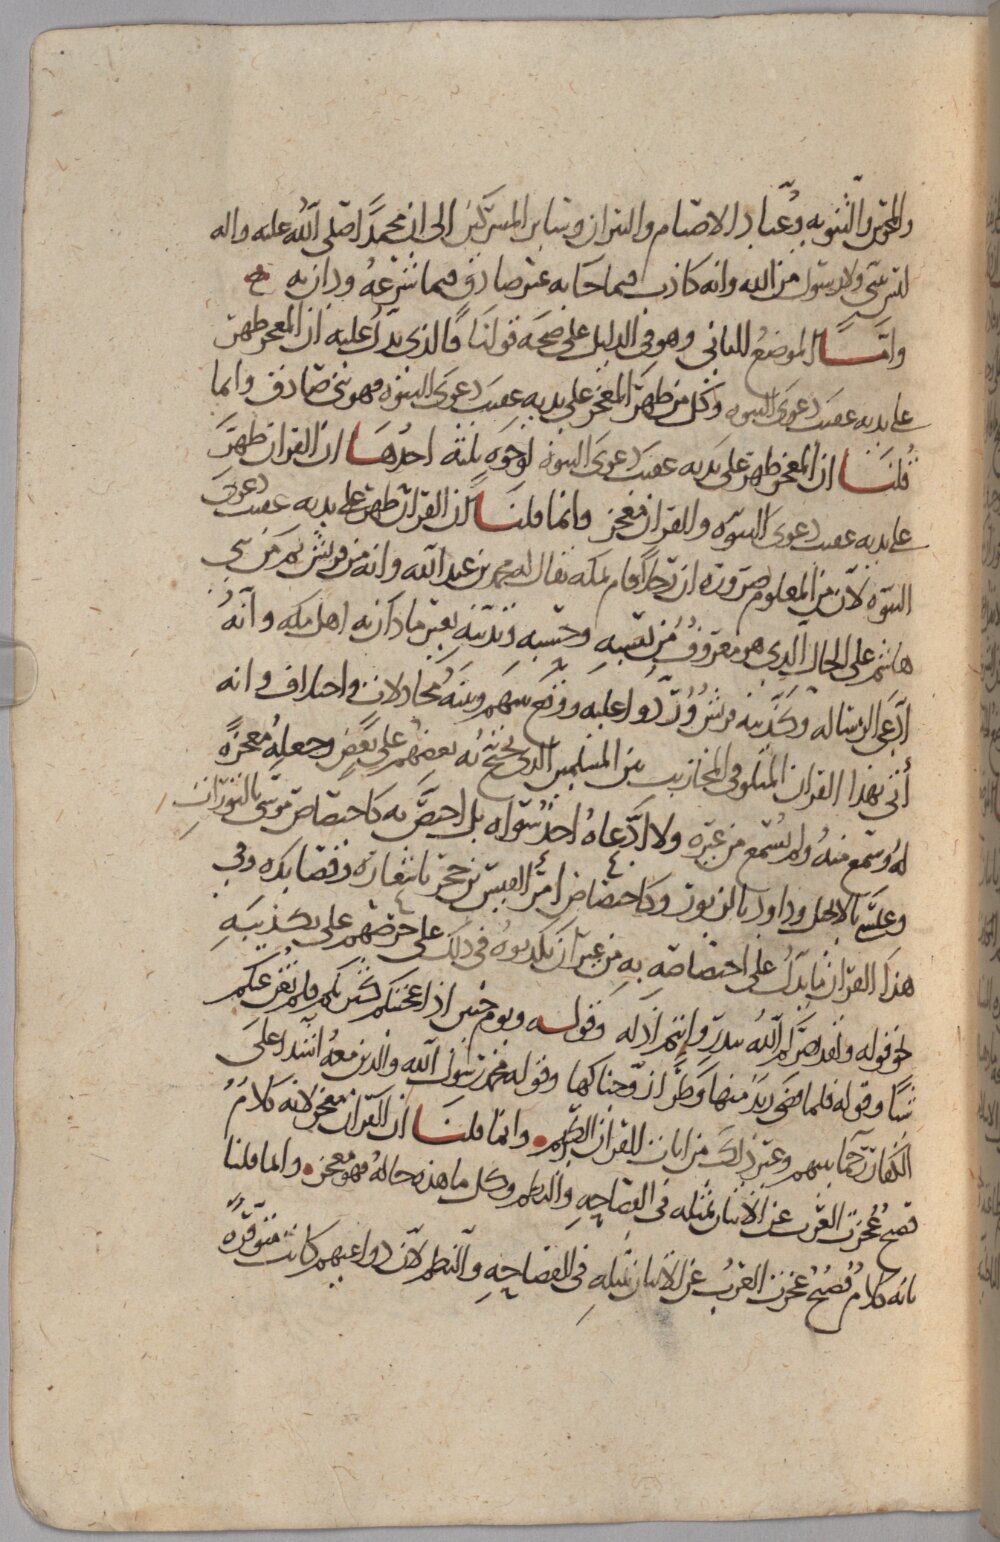 والمجوس والثنويه وعُبَّاد الاصنام والنيران وسائر المشركين الى ان محمدًا صلى الله عليه واله
ليس بنبى ولا رسول من الله وانه كاذب فيما جا به غير صادق فيما شرعهُ ودان به
وامــا الموضع الثانى وهو فى الدليل على صحه قولنا فالذى يدل عليه ان المعجز ظهر
على يديه عقيب دعوى النبوه وكل من ظهر المعجز على يديه عقيب دعوى النبوه فهو نبى صادق وانما
قلنــا ان المعجز ظهر على يديه عقيب دعوى النبوه لوجوه ثلثه احدُهــا ان القران ظهر
على يديه عقيب دعوى النبوّه والقران معجز وانما قلنــا ان القران ظهر على يديه عقيب دعوى
النبوه لانّ من المعلوم ضروره ان رجلًا قام بمكه يقال له محمد بن عبد الله وانه من قريش ثم من بنى
هاشم على الحال الذى هو معروفٌ من نسبهِ وحسبهِ وتدينه بغير ما دان به اهل مكه وانهُ
ادّعى الرساله وكذبته قريش ورُدُّوا عليه ووقع بينهم وبينهُ مجادلات واختلاف وانه
أتى بهذا القران المتلو فى المحاريب بين المسلمين الذى يحتج به بعضهم على بعضٍ وجعلهُ معجزةً
لهُ وسمع منهُ ولم يُسمع من غيره ولا ادّعاهُ احدٌ سواه بل اختصَّ به كاختصاص موسى بالتورانِ
وعيسى بالانجيل وداود بالزبور وكاختصاص امرئ القيس بن حجر باشعاره وقصايده وفى
هذا القران ما يدلُ على اختصاصهِ بِهِ من غير ان يكذبوهُ فى ذلك على حرصهم على تكذيبهِ
نحو قوله ولقد نصركم اللهُ ببدرٍ وانتم اذله وقولــه ويوم حنين اذ اعجبتكم كثرتكم فلم تُغن عنكم
شيئًا وقوله فلما قضى زيد منها وَطَرًا زوّجناكها وقوله محمد رسول الله والذين معهُ اشدا على
الكفار رحما بينهم وغير ذلك من ايات القران الكريم • وانما قلنــا ان القران معجز لانه كلامٌ
فصيح عُجزت العرب عن الاتيان بمثله فى الفصاحهِ والنظم وكل ما هذه حالهُ فهو معجز • وانما قلنا
بانه كلامٌ فُصيحٌ عجزت العربُ عن الاتيان بمثلهِ فى الفصاحهِ والنظم لانّ دواعيهم كانت متوفّرةً